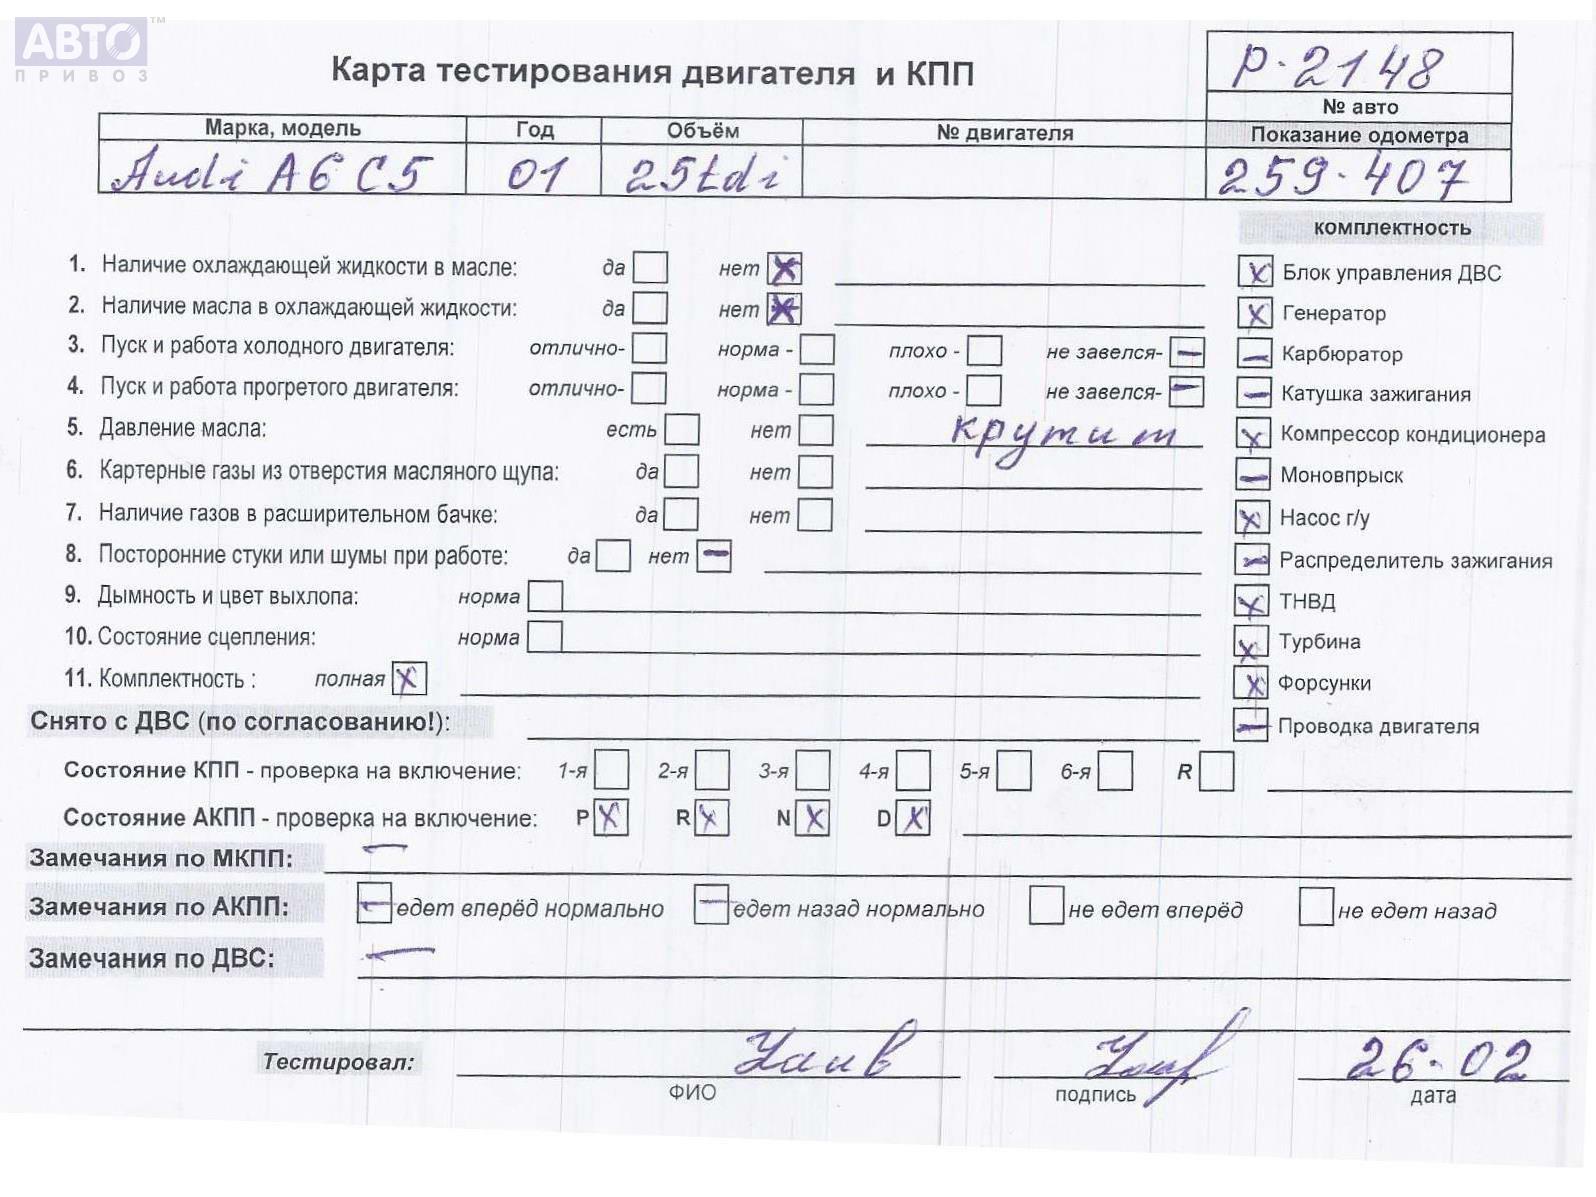 АВТО™
ПРИВОЗ
Карта тестирования двигателя и КПП
Р-2148
№ авто
Марка, модель Год Объём № двигателя Показание одометра
Audi A6 C5 01 25tdi 259-407
комплектность
1. Наличие охлаждающей жидкости в масле: да нет Х
2. Наличие масла в охлаждающей жидкости: да нет Х
3. Пуск и работа холодного двигателя: отлично- норма - плохо - не завелся- –
4. Пуск и работа прогретого двигателя: отлично- норма - плохо - не завелся- –
5. Давление масла: есть нет крутит
6. Картерные газы из отверстия масляного щупа: да нет
7. Наличие газов в расширительном бачке: да нет
8. Посторонние стуки или шумы при работе: да нет –
9. Дымность и цвет выхлопа: норма
10. Состояние сцепления: норма
11. Комплектность : полная Х
Х Блок управления ДВС
Х Генератор
– Карбюратор
– Катушка зажигания
Х Компрессор кондиционера
– Моновпрыск
Х Насос г/у
– Распределитель зажигания
Х ТНВД
Х Турбина
Х Форсунки
– Проводка двигателя
Снято с ДВС (по согласованию!):
Состояние КПП - проверка на включение: 1-я 2-я 3-я 4-я 5-я 6-я R
Состояние АКПП - проверка на включение: P Х R Х N Х D Х
Замечания по МКПП: –
Замечания по АКПП: – едет вперёд нормально – едет назад нормально не едет вперёд не едет назад
Замечания по ДВС: –
Тестировал: 26-02
ФИО подпись дата